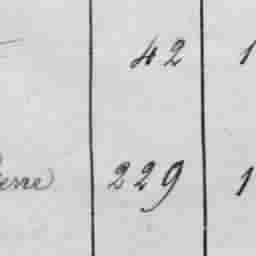 42 1
erre 229 1